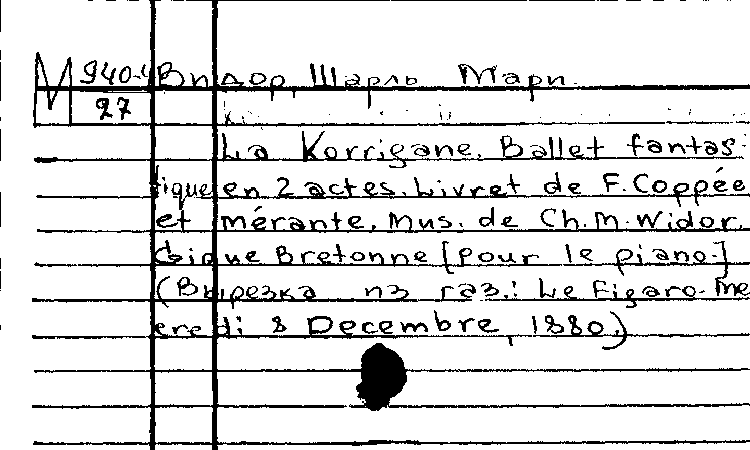 М 940-4 Видор, Шарль Мари.
27
La Korrigane. Ballet fantas-
tique en 2 actes. Livret de F. Coppée
et mérante. Mus. de Ch. M. Widor.
Gigue Bretonne [pour le piano.]
(Вырезка из газ.: Le Figaro. Me
eredi 8 Decembre, 1880.)